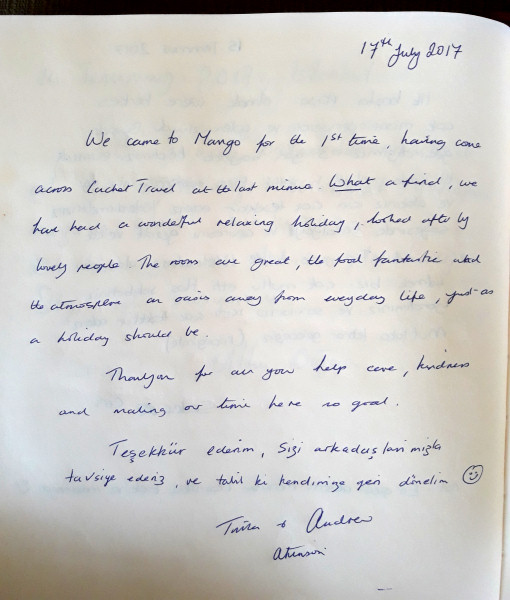 17th July 2017
We came to Mango for the 1st time, having come
across Cachet Travel at the last minute. What a find, we
have had a wonderful relaxing holiday, looked after by
lovely people. The rooms are great, the food fantastic and
the atmosphere an oasis away from everyday life, just as
a holiday should be.
Thankyou for all your help care, kindness
and making our time here so good.
Teşekkür ederim, Sizi arkadaşlarimizla
tavsiye ederiz, ve tabii ki kendimize geri dönelim
& Andrew
Atkinson